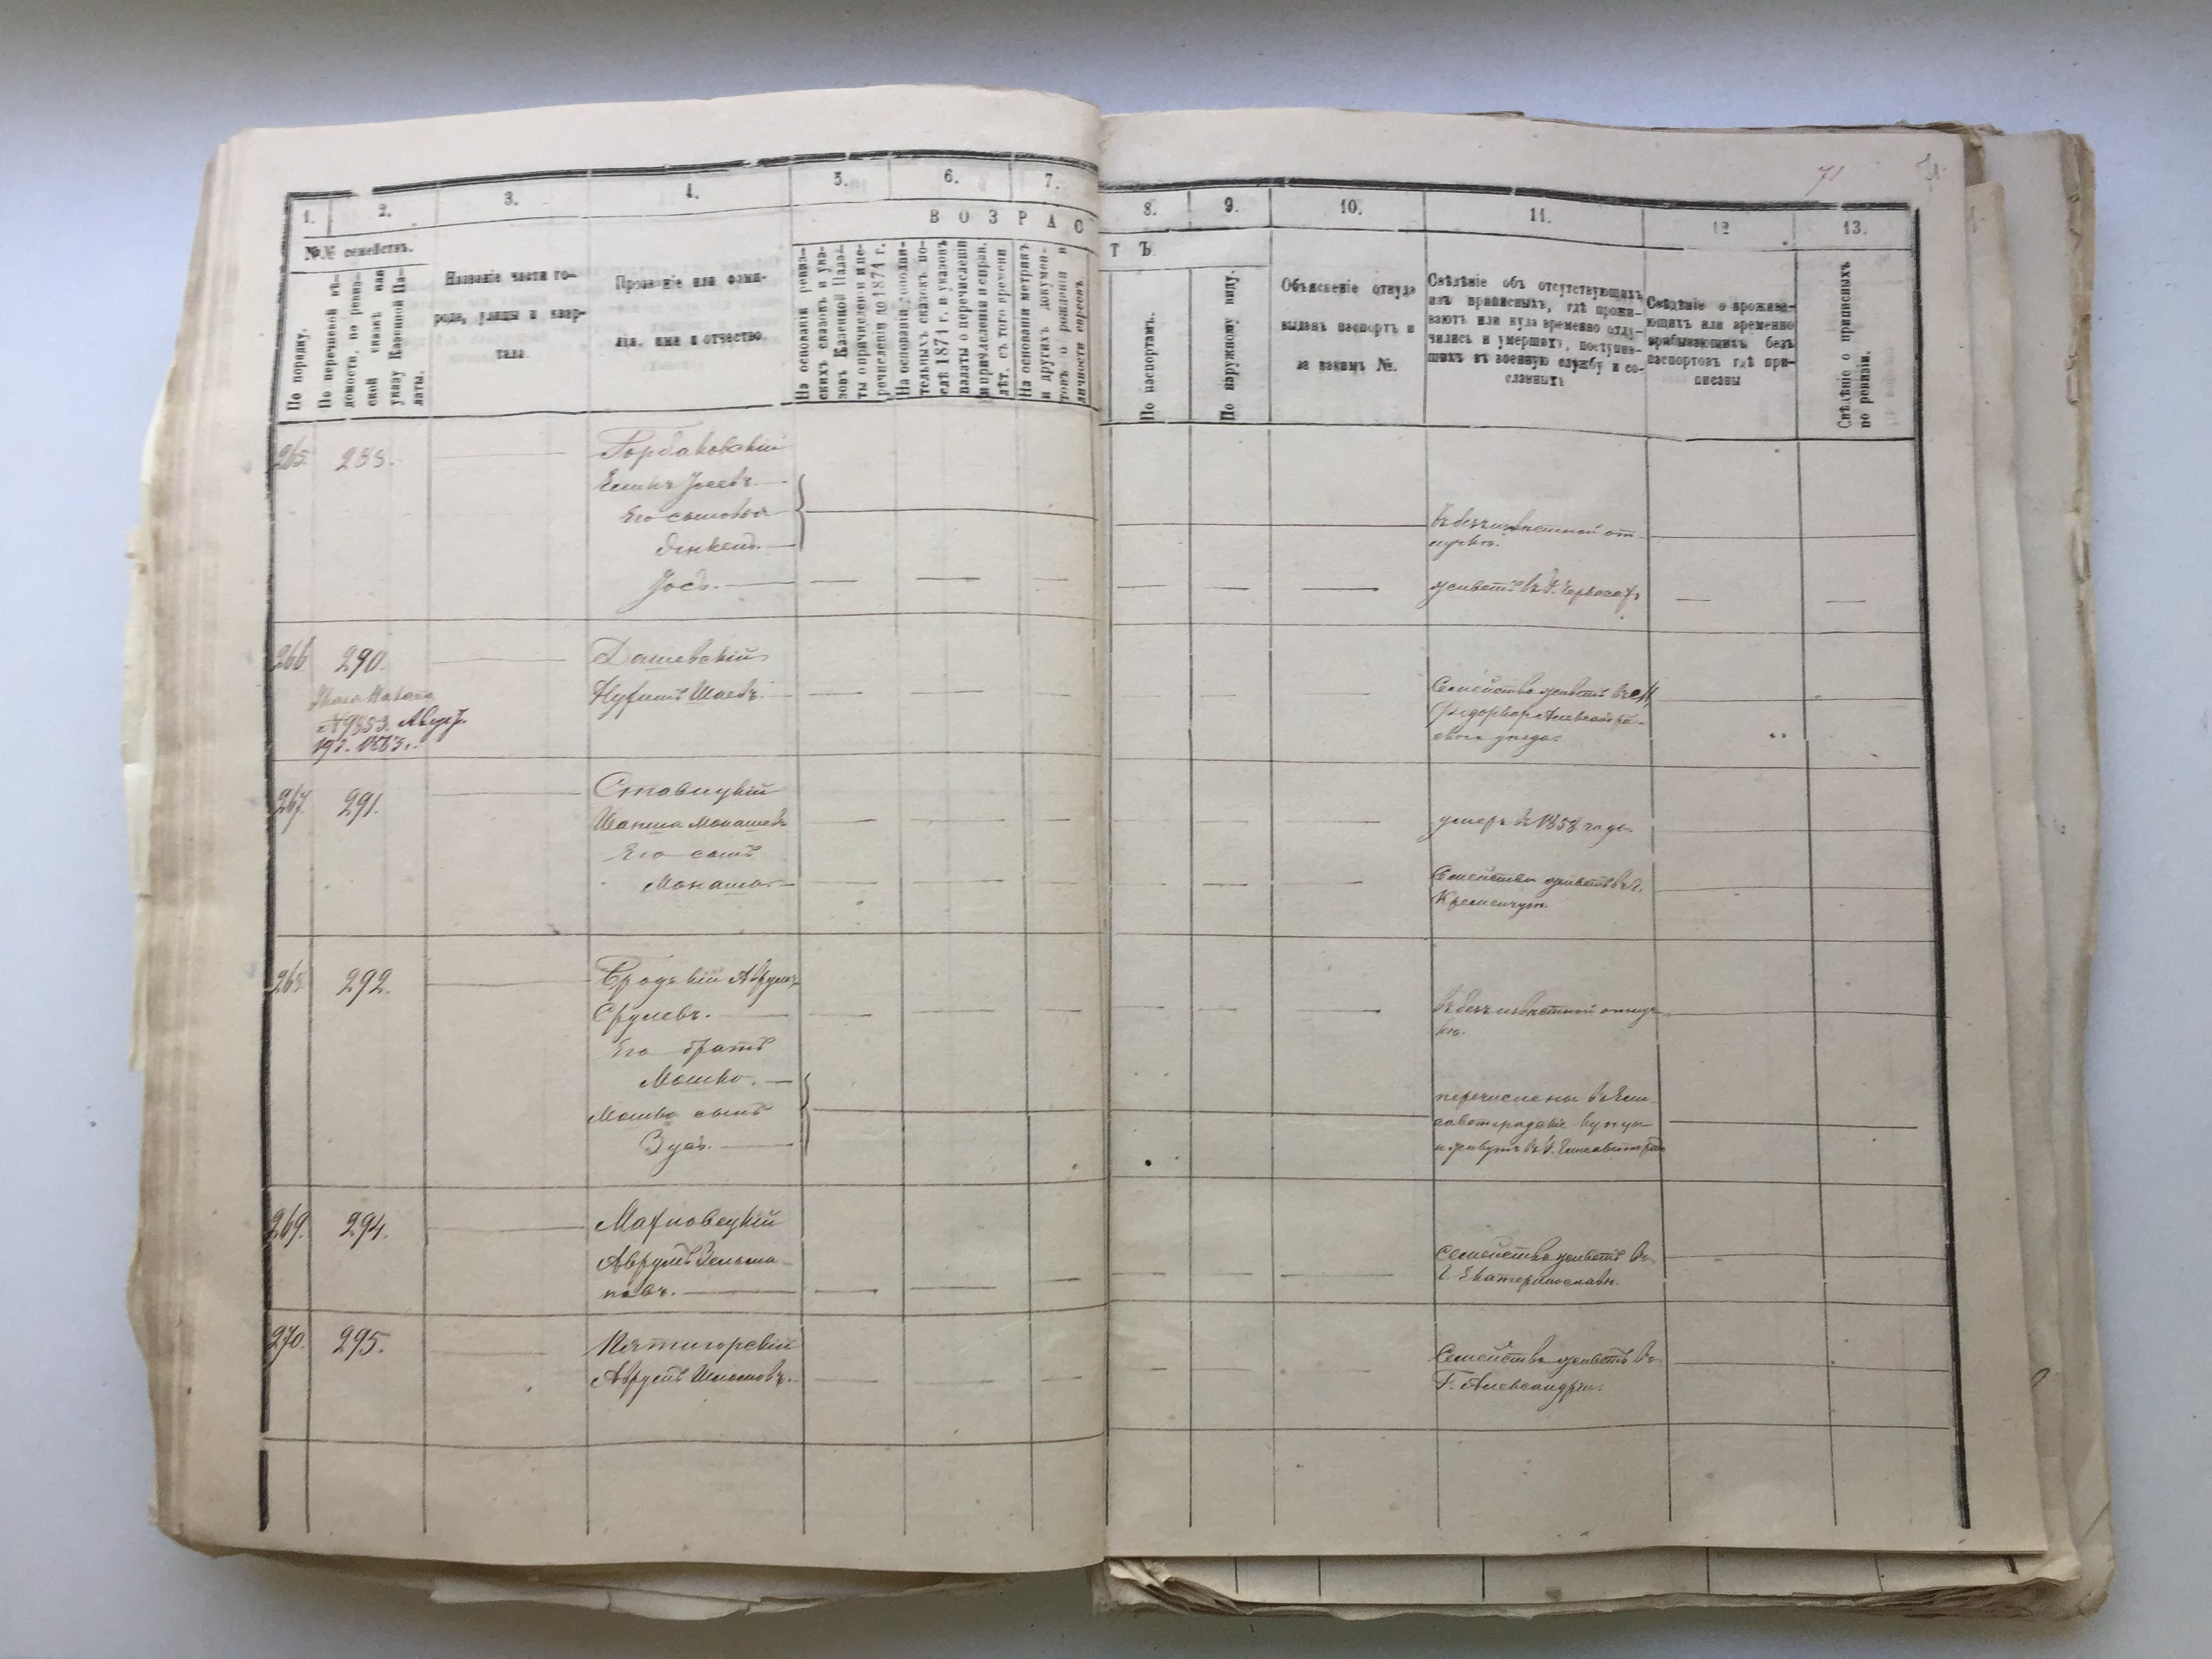 71
1.
2.
3.
4.
5.
6.
7.
8.
9.
10.
11.
12
13.
№№ семействъ.
В О З Р А С
Т Ъ
По порядку.
По перечневой вѣ-
домости, по ревиз-
ской сказкѣ или
указу Казенной Па-
латы.
Названіе части го-
рода, улицы и квар-
тала
Прозваніе или фами-
лія, имя и отчество.
На основаніи ревиз-
скихъ сказокъ и ука-
зовъ Казенной Пала-
ты о причисленіи и пе-
речисленіи до 1874 г.
На основаніи дополни-
тельныхъ сказокъ по-
слѣ 1874 г. и указовъ
палаты о перечисленіи
и причисленіи и исправ.
лѣт. съ того времени
На основаніи метрикъ
и другихъ докумен-
товъ о рожденіи и
личности евреевъ.
По паспортамъ.
По наружному виду.
Объясненіе откуда
выданъ паспортъ и
за какимъ №.
Свѣдѣніе объ отсутствующихъ
изъ приписныхъ, гдѣ прожи-
ваютъ или куда временно отлу-
чились и умершихъ, поступив-
шихъ въ военную службу и со-
сланныхъ
Свѣдѣніе о прожива-
ющихъ или временно
пребывающихъ безъ
паспортовъ гдѣ при-
писаны
Свѣдѣніе о приписныхъ
по ревизіи.
265. 288.
Горбаковскій
Іосевъ.
Его сыновья
Іосъ.
Въ безъизвѣстной от-
лучкѣ.
живетъ въ г. Черкасахъ
266 290.
Дашевскій
Нухимъ Шаевъ.
№ 9853. Август.
19 д. 1883 г.
Семейство живетъ въ
Александрій-
скаго уѣзда.
267. 291.
Ставицкій
Шапша Монашевъ
Его сынъ
Монашъ
умеръ въ 1858 году.
Семейство живетъ въ г.
Кременчугѣ.
268. 292.
Бродскій Аврумъ
Срулевъ.
Его братъ
Мошко.
Мошка сынъ
Зусь.
Въ безъизвѣстной отлуч-
кѣ.
перечислены въ Ели-
саветградскіе купцы
и живутъ въ г. Елисаветград
269. 294.
Махновецкій
Аврумъ Зельма-
новъ.
Семейство живетъ въ
г. Екатеринославѣ.
270. 295.
Пятигорскій
Аврумъ Шлиомовъ.
Семейство живетъ въ
г. Александріи.